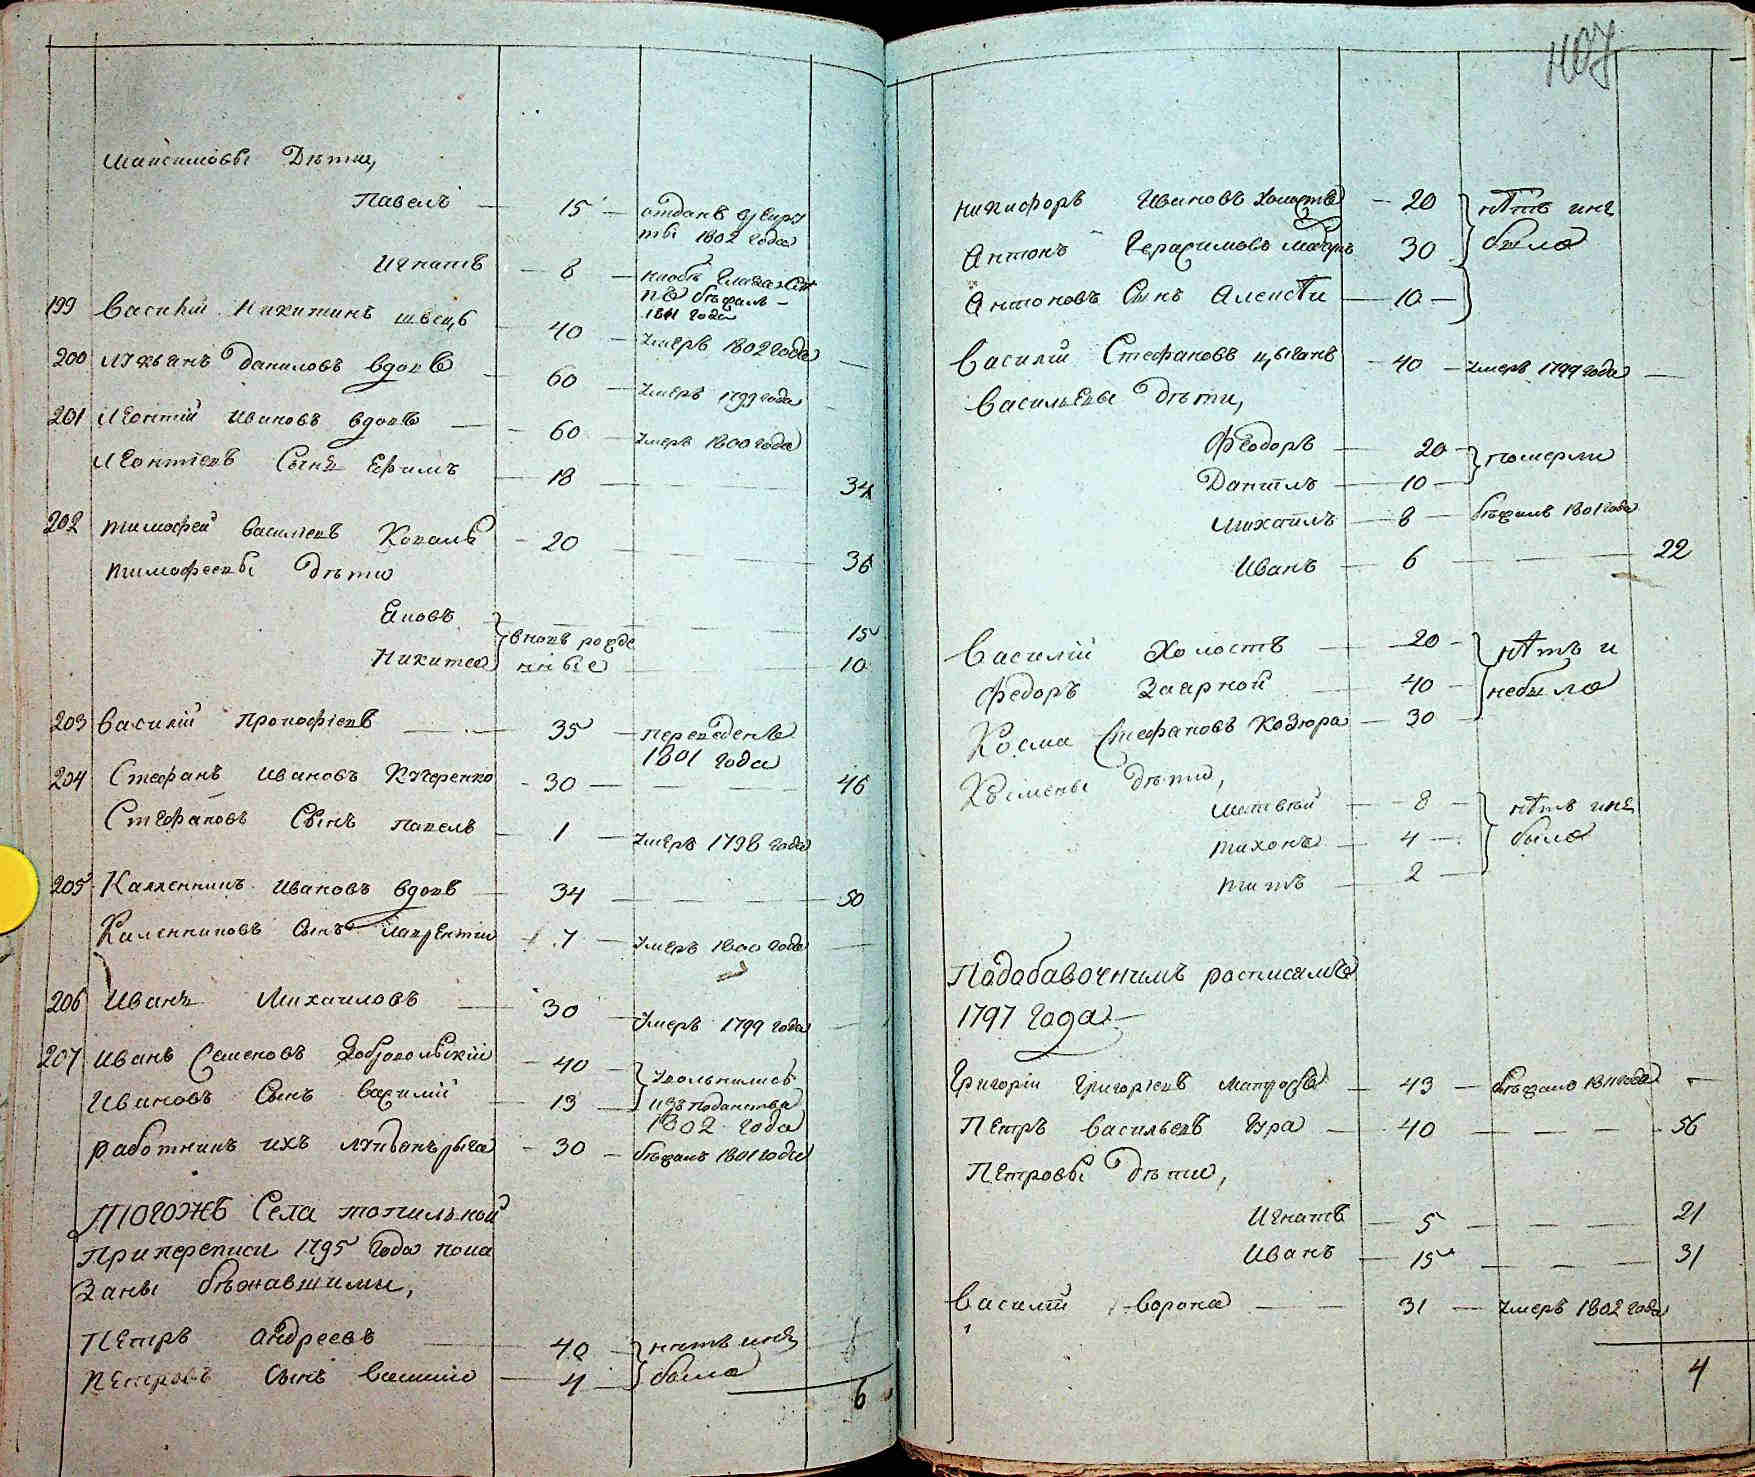 Максимовы Дѣти,
Павелъ — 15 — отданъ врекру
ты 1802 года
Игнатъ — 8 —
бѣжалъ —
1811 года
199 Василій Никитинъ швецъ — 40 — Умеръ 1802 года —
200 Лукьянъ Даниловъ вдовъ — 60 — Умеръ 1799 года —
201 Леонтій Ивановъ вдовъ — 60 — Умеръ 1800 года
Леонтіевъ Сынъ Ефимъ — 18 — 34
202 Тимофей Василіевъ Коваль — 20 — 36
Тимофеевы дѣти
Яковъ — 15
вновь рожде
Никита нные — 10
203 Василій Прокофіевъ — 35 — переведенъ
1801 года
204 Стефанъ Ивановъ Кучеренко — 30 — 46
Стефановъ Сынъ Павелъ — 1 — Умеръ 1798 года
205 Калленникъ Ивановъ вдовъ — 34 — 50
Каленниковъ Сынъ Лаврентій — 7 — Умеръ 1800 года —
206 Иванъ Михаиловъ — 30 — Умеръ 1799 года —
207 Иванъ Семеновъ Добровольскій — 40 — Увольнились
Ивановъ Сынъ Василій — 13 — изъ поданства
1802 года
работникъ ихъ — 30 — бѣжалъ 1801 года
Тогожъ Села топильной
При переписи 1795 года пока
Заны бѣжавшими,
Петръ Андреевъ — 40 — нѣтъ и не
Петровъ Сынъ Василій — 4 — было
6
107
Никифоръ Ивановъ Холостъ — 20 — нѣтъ и не
Антонъ Герасимовъ 30 было
Антоновъ Сынъ Алексѣй — 10 —
Василій Стефановъ цыганъ — 40 — Умеръ 1799 года —
Васильевы Дѣти,
Феодоръ — 20 — померли
Даніилъ — 10 —
Михаилъ — 8 — бѣжалъ 1801 года
Иванъ — 6 — 22
Василій Холостъ — 20 — нѣтъ и
Федоръ — 40 — небыло
Косма Стефановъ Козюра — 30 —
Космены дѣти,
Матвѣй — 8 — нѣтъ и не
Тихонъ — 4 — было
Титъ — 2 —
Подобавочнимъ росписямъ
1797 года
Григорій Григоріевъ — 43 — бѣжалъ 1811 года —
Петръ Васильевъ Гура — 40 — 56
Петровы Дѣти,
Игнатъ — 5 — 21
Иванъ — 15 — 31
Василій Ворона — 31 — Умеръ 1802 года
4